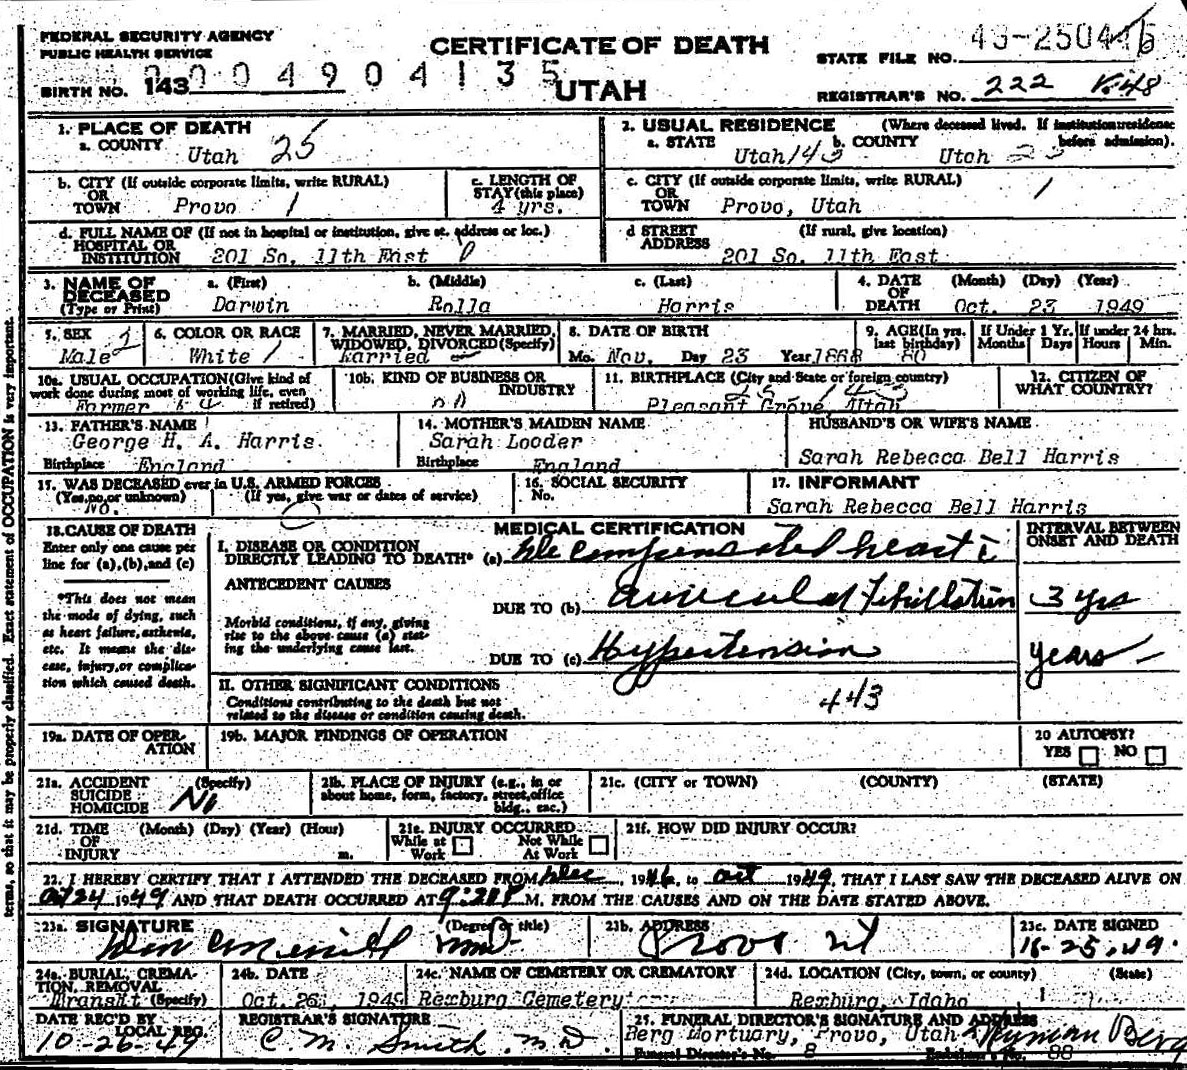 FEDERAL SECURITY AGENCY
PUBLIC HEALTH SERVICE
CERTIFICATE OF DEATH
UTAH
STATE FILE NO.
BIRTH NO. 143 0004904135
REGISTRAR'S NO. 222
1. PLACE OF DEATH
a. COUNTY Utah 25
2. USUAL RESIDENCE (Where deceased lived. If institution:residence before admission).
a. STATE Utah 143 b. COUNTY Utah
b. CITY (If outside corporate limits, write RURAL)
OR
TOWN Provo 1
c. LENGTH OF
STAY (this place)
4 yrs.
c. CITY (If outside corporate limits, write RURAL) 1
OR
TOWN Provo, Utah
d. FULL NAME OF (If not in hospital or institution, give st. address or loc.)
HOSPITAL OR
INSTITUTION 201 So. 11th East
d STREET (If rural, give location)
ADDRESS 201 So. 11th East.
3. NAME OF DECEASED (Type or Print)
a. (First) Darwin
b. (Middle) Rolla
c. (Last) Harris
4. DATE OF DEATH (Month) (Day) (Year)
Oct. 23 1949
5. SEX
Male
6. COLOR OR RACE
White 1
7. MARRIED, NEVER MARRIED,
WIDOWED, DIVORCED (Specify)
Married
8. DATE OF BIRTH
Mo. Nov. Day 23 Year 1868
9. AGE (In yrs. last birthday)
80
If Under 1 Yr. Months Days
If under 24 hrs. Hours Min.
10a. USUAL OCCUPATION (Give kind of
work done during most of working life, even
if retired)
Farmer
10b. KIND OF BUSINESS OR
INDUSTRY
11. BIRTHPLACE (City and State or foreign country)
Pleasant Grove, Utah
12. CITIZEN OF
WHAT COUNTRY?
13. FATHER'S NAME
George H. A. Harris.
Birthplace England
14. MOTHER'S MAIDEN NAME
Sarah Looder
Birthplace England
HUSBAND'S OR WIFE'S NAME
Sarah Rebecca Bell Harris
15. WAS DECEASED ever in U.S. ARMED FORCES
(Yes, no, or unknown) (If yes, give war or dates of service)
No.
16. SOCIAL SECURITY
No.
17. INFORMANT
Sarah Rebecca Bell Harris
18. CAUSE OF DEATH
Enter only one cause per
line for (a), (b), and (c)
*This does not mean
the mode of dying, such
as heart failure, asthenia,
etc. It means the dis-
ease, injury, or complica-
tion which caused death.
MEDICAL CERTIFICATION
INTERVAL BETWEEN
ONSET AND DEATH
I. DISEASE OR CONDITION
DIRECTLY LEADING TO DEATH* (a) Decompensated heart
ANTECEDENT CAUSES
DUE TO (b) auricular Fibrillation 3 yrs
Morbid conditions, if any, giving
rise to the above cause (a) stat-
ing the underlying cause last.
DUE TO (c) Hypertension years
II. OTHER SIGNIFICANT CONDITIONS
Conditions contributing to the death but not
related to the disease or condition causing death.
443
19a. DATE OF OPER-
ATION
19b. MAJOR FINDINGS OF OPERATION
20 AUTOPSY?
YES NO
21a. ACCIDENT (Specify)
SUICIDE
HOMICIDE No
21b. PLACE OF INJURY (e.g., in or
about home, farm, factory, street, office
bldg., etc.)
21c. (CITY or TOWN) (COUNTY) (STATE)
21d. TIME (Month) (Day) (Year) (Hour)
OF
INJURY m.
21e. INJURY OCCURRED
While at Work Not While At Work
21f. HOW DID INJURY OCCUR?
22. I HEREBY CERTIFY THAT I ATTENDED THE DECEASED FROM Dec, 1946, to Oct 1949, THAT I LAST SAW THE DECEASED ALIVE ON
Oct 24 1949 AND THAT DEATH OCCURRED AT M. FROM THE CAUSES AND ON THE DATE STATED ABOVE.
23a. SIGNATURE (Degree or title)
Don C Merrill MD
23b. ADDRESS
Provo Ut
23c. DATE SIGNED
10-25-49.
24a. BURIAL, CREMA-
TION, REMOVAL
(Specify)
Transit
24b. DATE
Oct. 26, 1949
24c. NAME OF CEMETERY OR CREMATORY
Rexburg Cemetery
24d. LOCATION (City, town, or county) (State)
Rexburg, Idaho
DATE REC'D BY
LOCAL REG.
10-26-49
REGISTRAR'S SIGNATURE
C. M. Smith, M.D.
25. FUNERAL DIRECTOR'S SIGNATURE AND ADDRESS
Berg Mortuary, Provo, Utah Berg
Funeral Director's No. 8 Embalmer's No. 88
terms, so that it may be properly classified. Exact statement of OCCUPATION is very important.